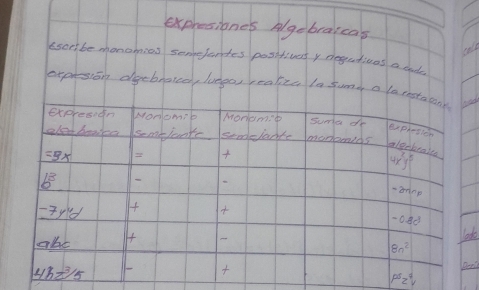 Expresiones Algebraicas
escribe monomios semejantes positivos y negativos a cada
expresión algebraica, luego realiza la suma o la resta
Expresión algebraica Monomio semejante Monomio semejante Suma de monomios Expresión algebraica
-9x = + 4x³y⁵
b³ - -
-7y⁴d + + -0.8c³
abc + - 8n²
4hz³/5 - + p⁵z⁴v